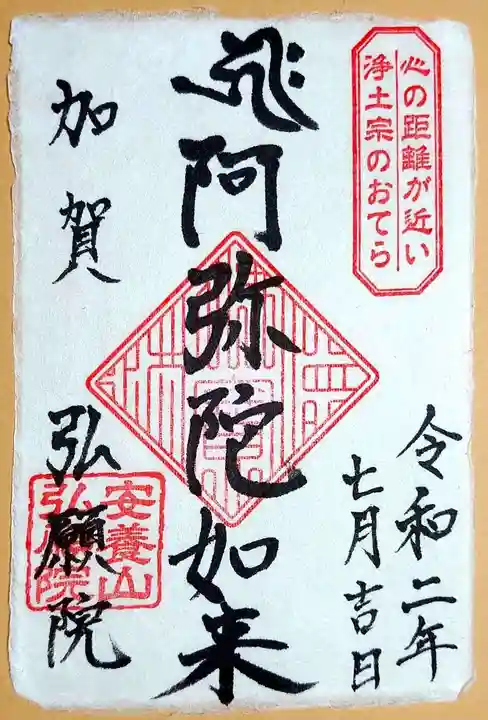 心の距離が近い
浄土宗のおてら
令和二年
七月吉日
阿弥陀如来
加賀 弘願院
安養山
弘願院